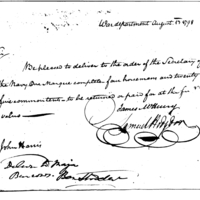 War department August 1798
Sir,
Be pleased to deliver to the order of the Secretary of
the Navy One Marque complete four horsemens and twenty
five common tents to be returned or paid for at the
value
James McHenry
Samuel Hodgdon
John Harris
Deliver to Major